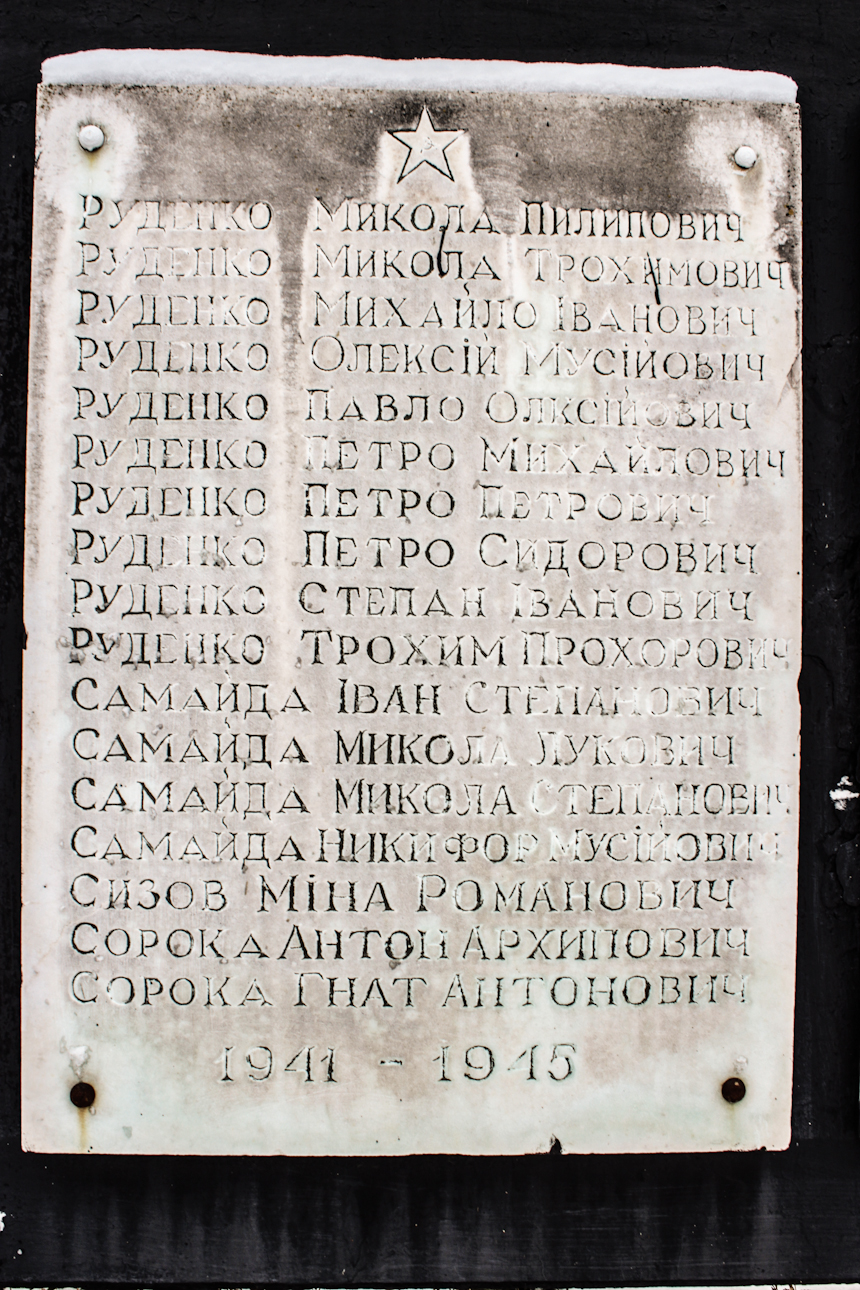 РУДЕНКО МИКОЛА ПИЛИПОВИЧ
РУДЕНКО МИКОЛА ТРОХИМОВИЧ
РУДЕНКО МИХАЙЛО ІВАНОВИЧ
РУДЕНКО ОЛЕКСІЙ МУСІЙОВИЧ
РУДЕНКО ПАВЛО ОЛКСІЙОВИЧ
РУДЕНКО ПЕТРО МИХАЙЛОВИЧ
РУДЕНКО ПЕТРО ПЕТРОВИЧ
РУДЕНКО ПЕТРО СИДОРОВИЧ
РУДЕНКО СТЕПАН ІВАНОВИЧ
РУДЕНКО ТРОХИМ ПРОХОРОВИЧ
САМАЙДА ІВАН СТЕПАНОВИЧ
САМАЙДА МИКОЛА ЛУКОВИЧ
САМАЙДА МИКОЛА СТЕПАНОВИЧ
САМАЙДА НИКИФОР МУСІЙОВИЧ
СИЗОВ МІНА РОМАНОВИЧ
СОРОКА АНТОН АРХИПОВИЧ
СОРОКА ГНАТ АНТОНОВИЧ
1941 - 1945